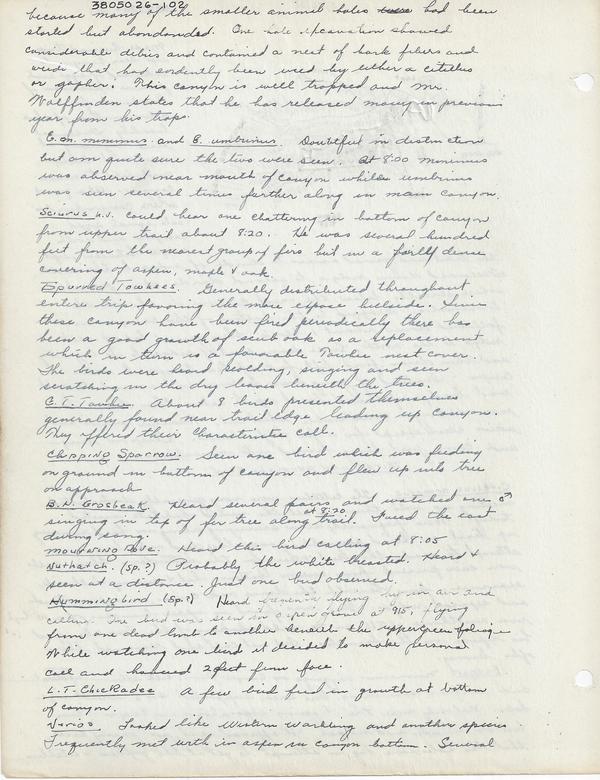 3805026-102
because many of the smaller animal holes had been
started but abandoned. One hole excavation showed
considerable debris and contained a nest of bark fibers and
weeds that had evidently been used by either a citellus
or gopher. This canyon is well trapped and Mr.
Wolffinden states that he has released many in previous
year from his traps.
E. m. minimus and E. umbrinus. Doubtful in distinction
but am quite sure the two were seen. At 8:00 minimus
was observed near mouth of canyon while umbrinus
was seen several times farther along in main canyon.
Sciurus h.v. could hear one chattering in bottom of canyon
from upper trail about 8:20. He was several hundred
feet from the nearest group of firs but in a fairly dense
covering of aspen, maple & oak.
Spurred Towhees. Generally distributed throughout
entire trip favoring the more expose hillside. Since
these canyon have been fired periodically there has
been a good growth of scrub oak as a replacement
which in turn is a favorable Towhee nest cover.
The birds were heard scolding, singing and seen
scratching in the dry leaves beneath the trees.
G.T. Towhee. About 8 birds presented themselves
generally found near trail edge leading up canyon.
They offered their characteristic call.
Chipping Sparrow. Seen one bird which was feeding
on ground in bottom of canyon and flew up into tree
on approach
B.H. Grosbeak. Heard several pairs and watched one ♂
singing in top of fir tree along trail. at 8:20 Faced the east
during song.
Mourning Dove. Heard this bird calling at 8:05
Nuthatch. (Sp.?) Probably the white breasted. Heard &
seen at a distance. Just one bird observed.
Hummingbird (Sp.?) Heard frequently flying by in air and
calling. One bird was seen in aspen grove at 9:15, flying
from one dead limb to another beneath the upper green foliage
While watching one bird it decided to make personal
call and hovered 2 feet from face.
L.T. Chickadee A few bird feed in growth at bottom
of canyon.
Vireos. Looked like Western Warbling and another species
Frequently met with in aspen in canyon bottom. Several